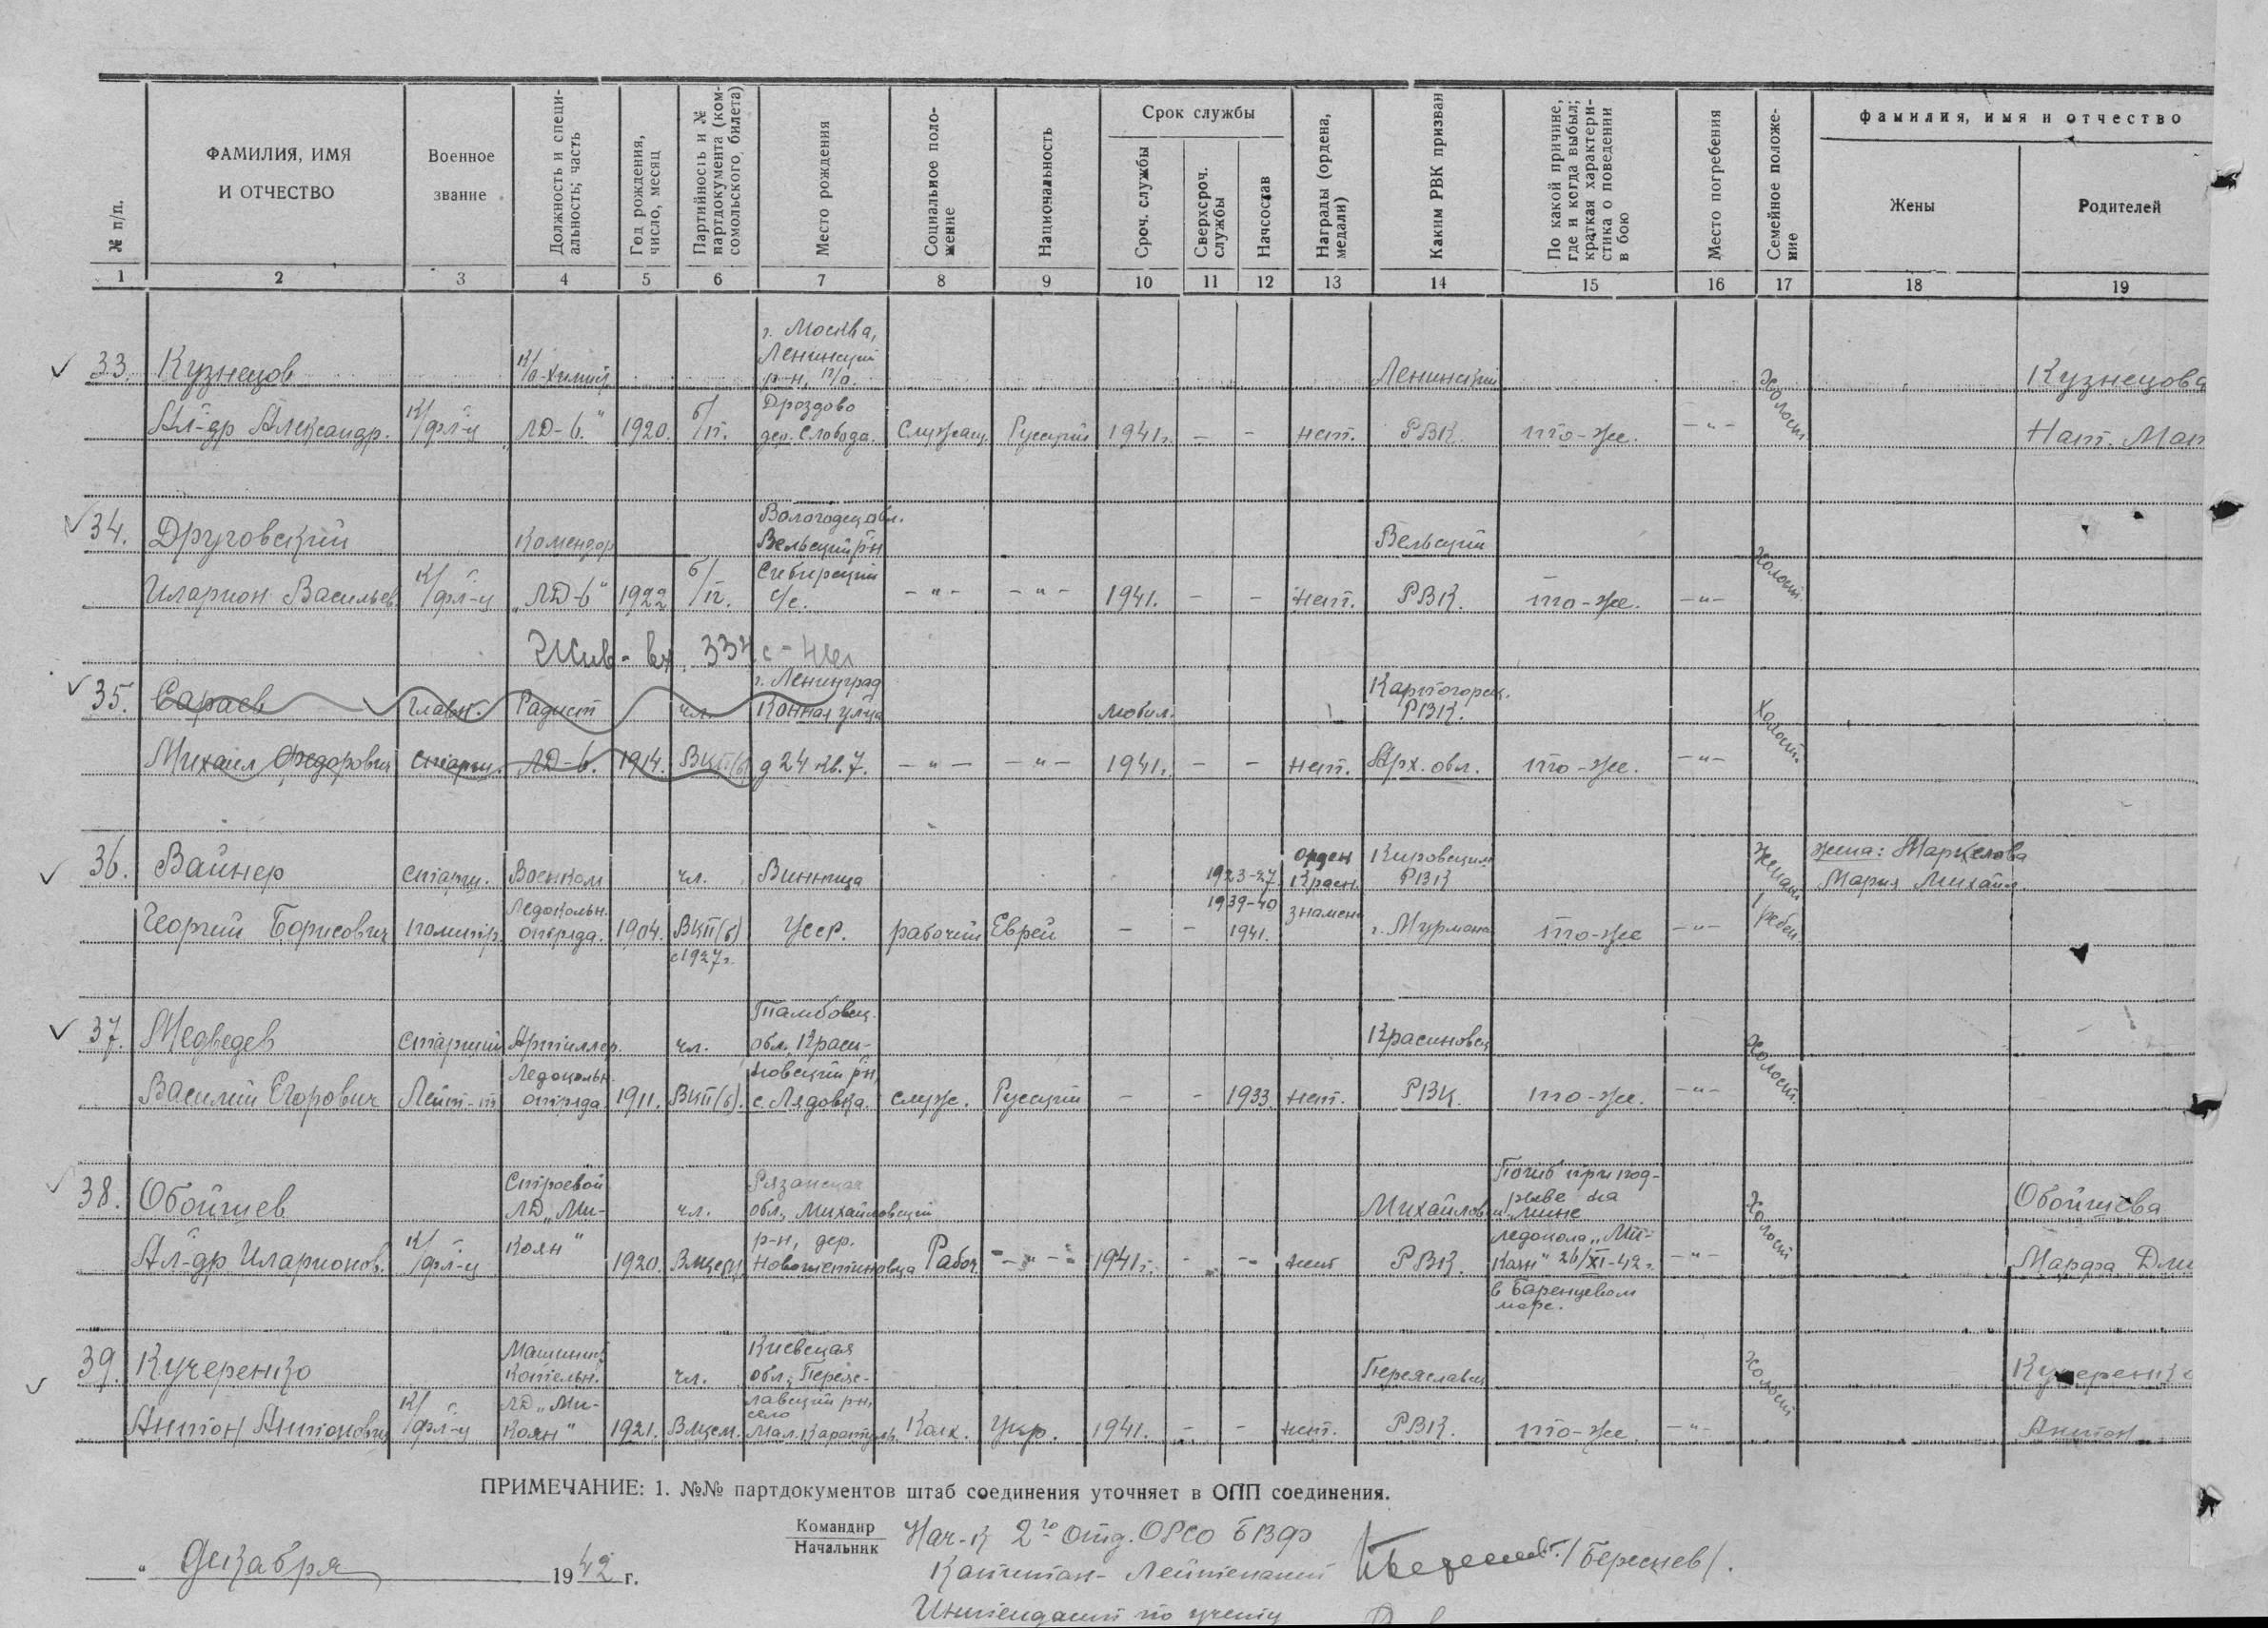 № п/п.
ФАМИЛИЯ, ИМЯ
И ОТЧЕСТВО
Военное
звание
Должность и специ-
альность; часть
Год рождения,
число, месяц
Партийность и №
партдокумента (ком-
сомольского билета)
Место рождения
Социальное поло-
жение
Национальность
Срок службы
Сроч. службы
Сверхсроч.
службы
Начсостав
Награды (ордена,
медали)
Каким РВК призван
По какой причине,
где и когда выбыл;
краткая характери-
стика о поведении
в бою
Место погребения
Семейное положе-
ние
фамилия, имя и отчество
Жены
Родителей
1 2 3 4 5 6 7 8 9 10 11 12 13 14 15 16 17 18 19
г. Москва,
Ленинский
33. Кузнецов р-н, п/о. Ленинский Холост Кузнецова
Дроздово
Ал-др Александр. К/фл-ц „ЛД-6" 1920. б/п. дер. Слобода. Служащ. Русский 1941г. - - нет. РВК то-же. -"- Нат.
Вологодск. обл.
34. Друговский Комендор Вельский р-н Вельский Холост
Сибирский
Иларион Васильев. К/фл-ц „ЛД-6" 1922 б/п. с/с. -"- -"- 1941. - - нет. РВК. то-же. -"-
Жив - вх. 334
г. Ленинград
35. Сараев Главн. Радист чл. Конная улица мобил. Карпогорск. РВК. Холост.
Михаил Федорович старш. ЛД-6. 1914. ВКП(б) д 24 кв. 7. -"- -"- 1941г. - - нет. Арх. обл. то-же. -"-
36. Вайнер старш. Военком чл. Винница 1923-27 орден Красн. Кировским РВК Женат жена: Маркелова
Ледокольн. 1939-40 знамени Мария Михайл
Георгий Борисович политр. отряда. 1904. ВКП(б) УССР. рабочий Еврей - - 1941. г. Мурманск то-же -"- 1 ребен.
с 1927г.
Тамбовск.
37. Медведев Старший Артиллер. чл. обл. Краси- Красиновск Холост.
Ледокольн. новский р-н,
Василий Егорович Лейт-т отряда 1911. ВКП(б). с. Лядовка. служ. Русский - - 1933. нет. РВК. то-же. -"-
Строевой Рязанская Погиб при под-
38. Обойщев ЛД „Ми- чл. обл., Михайловский Михайловск рыве на мине Холост Обойщева
коян" р-н, дер. ледокола „Ми-
Ал-др Иларионов. К/фл-ц 1920. Рабоч. -"- 1941г. - - нет РВК. коян" 26/XI-42г. -"- Марфа
в Баренцевом
море.
Машинист Киевская
39. Кучеренко Котельн. чл. обл., Перея- Переяславск Холост Кучеренко
ЛД „Ми- славский р-н,
село
Антон Антонович К/фл-ц коян" 1921. Мал. Каратуль. Колх. Укр. 1941. - - нет. РВК. то-же. -"- Антон
ПРИМЕЧАНИЕ: 1. №№ партдокументов штаб соединения уточняет в ОПП соединения.
Командир
Начальник
Нач-к 2го отд. ОРСО БВФ
„ Декабря 1942 г.
Капитан-Лейтенант /Береснев/.
Интендант по учету